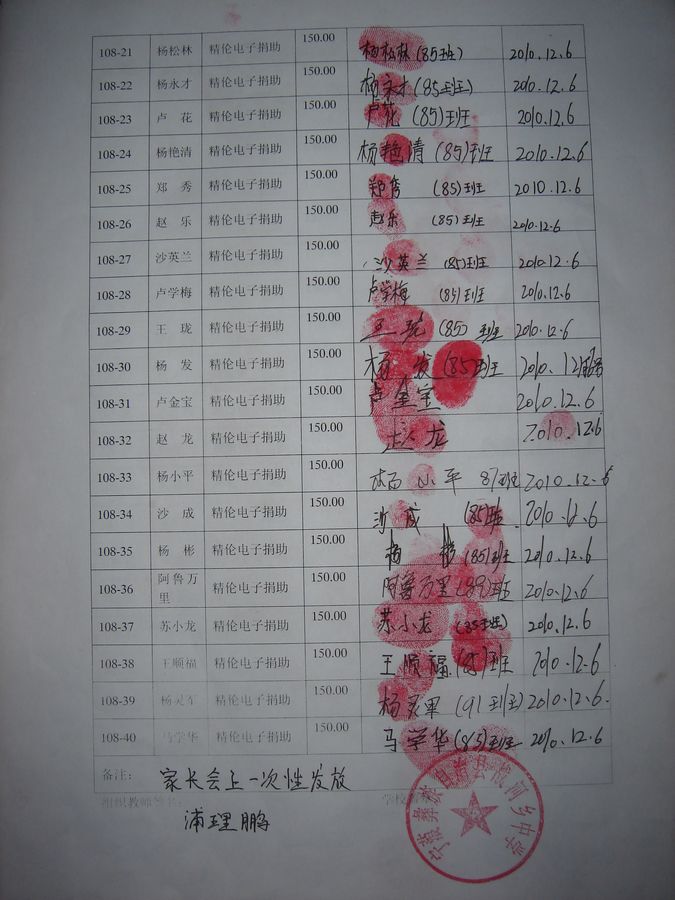 108-21 杨松林 精伦电子捐助 150.00 杨松林(85班) 2010.12.6
108-22 杨永才 精伦电子捐助 150.00 杨永才(85班) 2010.12.6
108-23 卢 花 精伦电子捐助 150.00 卢花 (85)班 2010.12.6
108-24 杨艳清 精伦电子捐助 150.00 杨艳清 (85)班 2010.12.6
108-25 郑 秀 精伦电子捐助 150.00 郑秀 (85)班 2010.12.6
108-26 赵 乐 精伦电子捐助 150.00 赵乐 (85)班 2010.12.6
108-27 沙英兰 精伦电子捐助 150.00 沙英兰 (85)班 2010.12.6
108-28 卢学梅 精伦电子捐助 150.00 卢学梅 (85)班 2010.12.6
108-29 王 珑 精伦电子捐助 150.00 王珑 (85) 班 2010.12.6
108-30 杨 发 精伦电子捐助 150.00 杨发(85)班 2010.12
108-31 卢金宝 精伦电子捐助 150.00 卢金宝 2010.12.6
108-32 赵 龙 精伦电子捐助 150.00 赵龙 2010.12.6
108-33 杨小平 精伦电子捐助 150.00 杨小平 87班 2010.12.6
108-34 沙 成 精伦电子捐助 150.00 沙成 (85)班 2010.12.6
108-35 杨 彬 精伦电子捐助 150.00 杨彬 (85)班 2010.12.6
108-36 阿鲁万里 精伦电子捐助 150.00 阿鲁万里(89)班 2010.12.6
108-37 苏小龙 精伦电子捐助 150.00 苏小龙 (85班) 2010.12.6
108-38 王顺福 精伦电子捐助 150.00 王顺福(85)班 2010.12.6
108-39 杨灵军 精伦电子捐助 150.00 杨灵军 (91班) 2010.12.6.
108-40 马学华 精伦电子捐助 150.00 马学华(85)班 2010.12.6
备注: 家长会上一次性发放
组织教师签名: 学校
浦理鹏
宁蒗彝族自治县 河乡中学